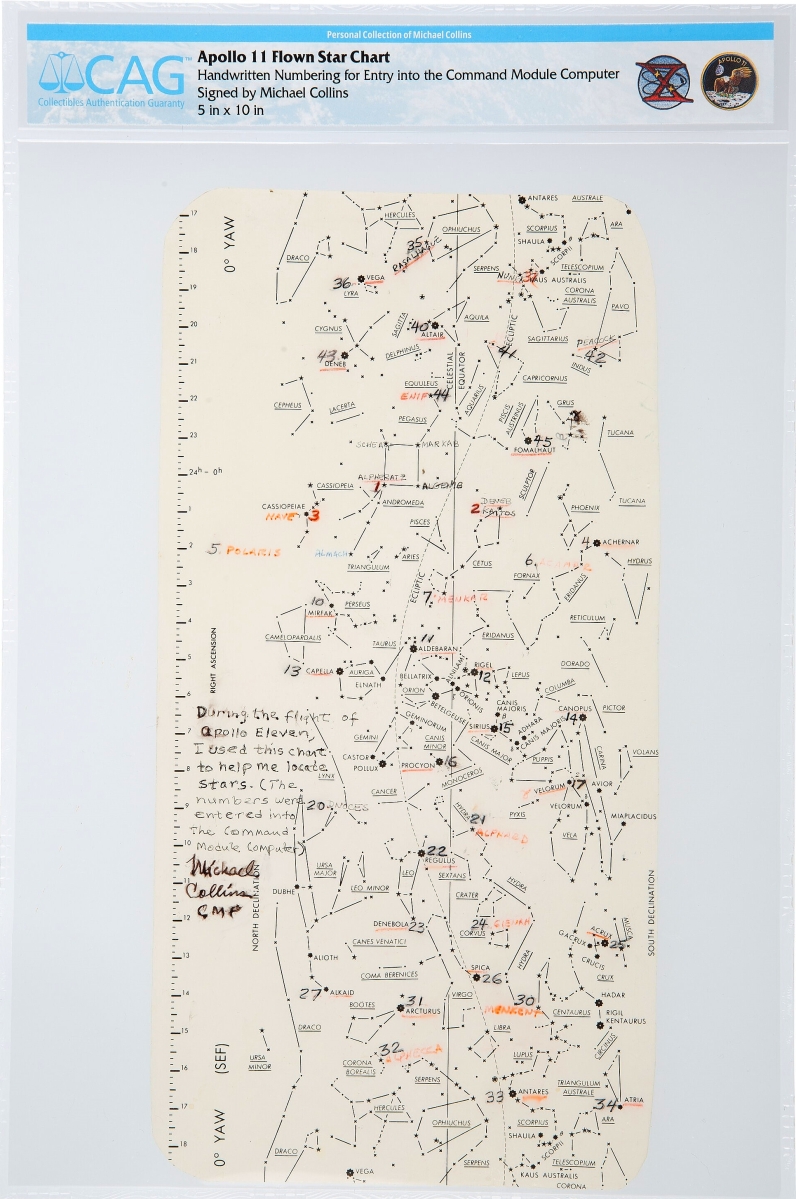 Personal Collection of Michael Collins
CAG™
Collectibles Authentication Guaranty
Apollo 11 Flown Star Chart
Handwritten Numbering for Entry into the Command Module Computer
Signed by Michael Collins
5 in x 10 in
APOLLO 11
17
0° YAW
HERCULES
OPHIUCHUS
ANTARES
AUSTRALE
SCORPIUS
ARA
SHAULA
SCORPII
18
DRACO
35
RASALHAGUE
SERPENS
TELESCOPIUM
36
VEGA
LYRA
37
KAUS AUSTRALIS
CORONA
AUSTRALIS
PAVO
19
20
CYGNUS
SAGITTA
40
ALTAIR
AQUILA
ECLIPTIC
SAGITTARIUS
PEACOCK
43
DENEB
DELPHINUS
CELESTIAL
EQUATOR
41
42
INDUS
21
EQUULEUS
ENIF
44
AQUARIUS
CAPRICORNUS
22
CEPHEUS
LACERTA
PEGASUS
PISCIS
AUSTRINUS
GRUS
TUCANA
23
SCHEAT
MARKAB
45
FOMALHAUT
24h - 0h
ALPHERATZ
CASSIOPEIA
1
ALGENIB
SCULPTOR
ANDROMEDA
DENEB
KAITOS
2
TUCANA
PHOENIX
1
CASSIOPEIAE
NAVI
3
PISCES
4
ACHERNAR
2
5. POLARIS
ALMACH
ARIES
TRIANGULUM
CETUS
6.
FORNAX
HYDRUS
3
ECLIPTIC
7.
MENKAR
ERIDANUS
10
PERSEUS
MIRFAK
RETICULUM
4
CAMELOPARDALIS
TAURUS
11
ALDEBARAN
ERIDANUS
5
RIGHT ASCENSION
13
CAPELLA
AURIGA
ELNATH
BELLATRIX
RIGEL
12
LEPUS
DORADO
6
ORION
ORIONIS
BETELGEUSE
CANIS
MAJORIS
COLUMBA
CANOPUS
14
PICTOR
7
During the flight of
Apollo Eleven,
I used this chart
to help me locate
stars. (The
numbers were
entered into
the Command
Module Computer)
Michael
Collins
CMP
GEMINORUM
SIRIUS
15
ADHARA
CANIS MAJORIS
GEMINI
CANIS
MINOR
CANIS MAJOR
PUPPIS
CARINA
VOLANS
8
CASTOR
POLLUX
PROCYON
16
MONOCEROS
LYNX
CANCER
VELORUM
17
AVIOR
9
20
HYDRA
PYXIS
VELORUM
MIAPLACIDUS
21
ALPHARD
VELA
10
22
REGULUS
URSA
MAJOR
LEO
SEXTANS
NORTH DECLINATION
SOUTH DECLINATION
11
DUBHE
LEO MINOR
HYDRA
CRATER
12
DENEBOLA
23
24
GIENAH
CORVUS
ACRUX
25
MUSCA
GACRUX
CANES VENATICI
CRUCIS
13
ALIOTH
COMA BERENICES
SPICA
26
HYDRA
CRUX
14
27
ALKAID
BOOTES
31
ARCTURUS
VIRGO
30
MENKENT
HADAR
CENTAURUS
RIGIL
KENTAURUS
15
DRACO
LIBRA
CIRCINUS
(SEF)
URSA
MINOR
32
ALPHECCA
CORONA
BOREALIS
LUPUS
16
SERPENS
33
ANTARES
TRIANGULUM
AUSTRALE
34
ATRIA
17
0° YAW
HERCULES
OPHIUCHUS
SCORPIUS
ARA
SHAULA
SCORPII
18
DRACO
VEGA
SERPENS
TELESCOPIUM
KAUS AUSTRALIS
CORONA